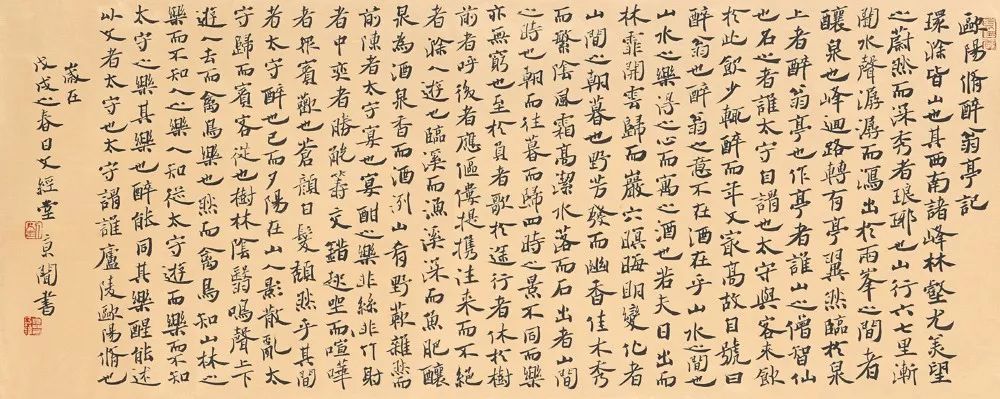 歐陽脩醉翁亭記
環滁皆山也其西南諸峰林壑尤美望
之蔚然而深秀者琅琊也山行六七里漸
聞水聲潺潺而瀉出於兩峯之間者
釀泉也峰迴路轉有亭翼然臨於泉
上者醉翁亭也作亭者誰山之僧智仙
也名之者誰太守自謂也太守與客来飲
於此飲少輒醉而年又冣高故自號曰
醉翁也醉翁之意不在酒在乎山水之間也
山水之樂得之心而寓之酒也若夫日出而
林霏開雲歸而巖穴暝晦明變化者
山間之朝暮也野芳發而幽香佳木秀
而繁陰風霜高潔水落而石出者山間
之時也朝而往暮而歸四時之景不同而樂
亦無窮也至於負者歌於途行者休於樹
前者呼後者應傴僂提携往来而不絕
者滁人遊也臨溪而漁溪深而魚肥釀
泉為酒泉香而酒洌山肴野蔌雜然而
前陳者太守宴也宴酣之樂非絲非竹射
者中奕者勝觥籌交錯起坐而喧嘩
者眾賓歡也蒼顏白髮頹然乎其間
者太守醉也已而夕陽在山人影散亂太
守歸而賓客從也樹林陰翳鳴聲上下
遊人去而禽鳥樂也然而禽鳥知山林之
樂而不知人之樂人知從太守遊而樂而不知
太守之樂其樂也醉能同其樂醒能述
以文者太守也太守謂誰廬陵歐陽脩也
歲在
戊戌之春日文經堂
聞書